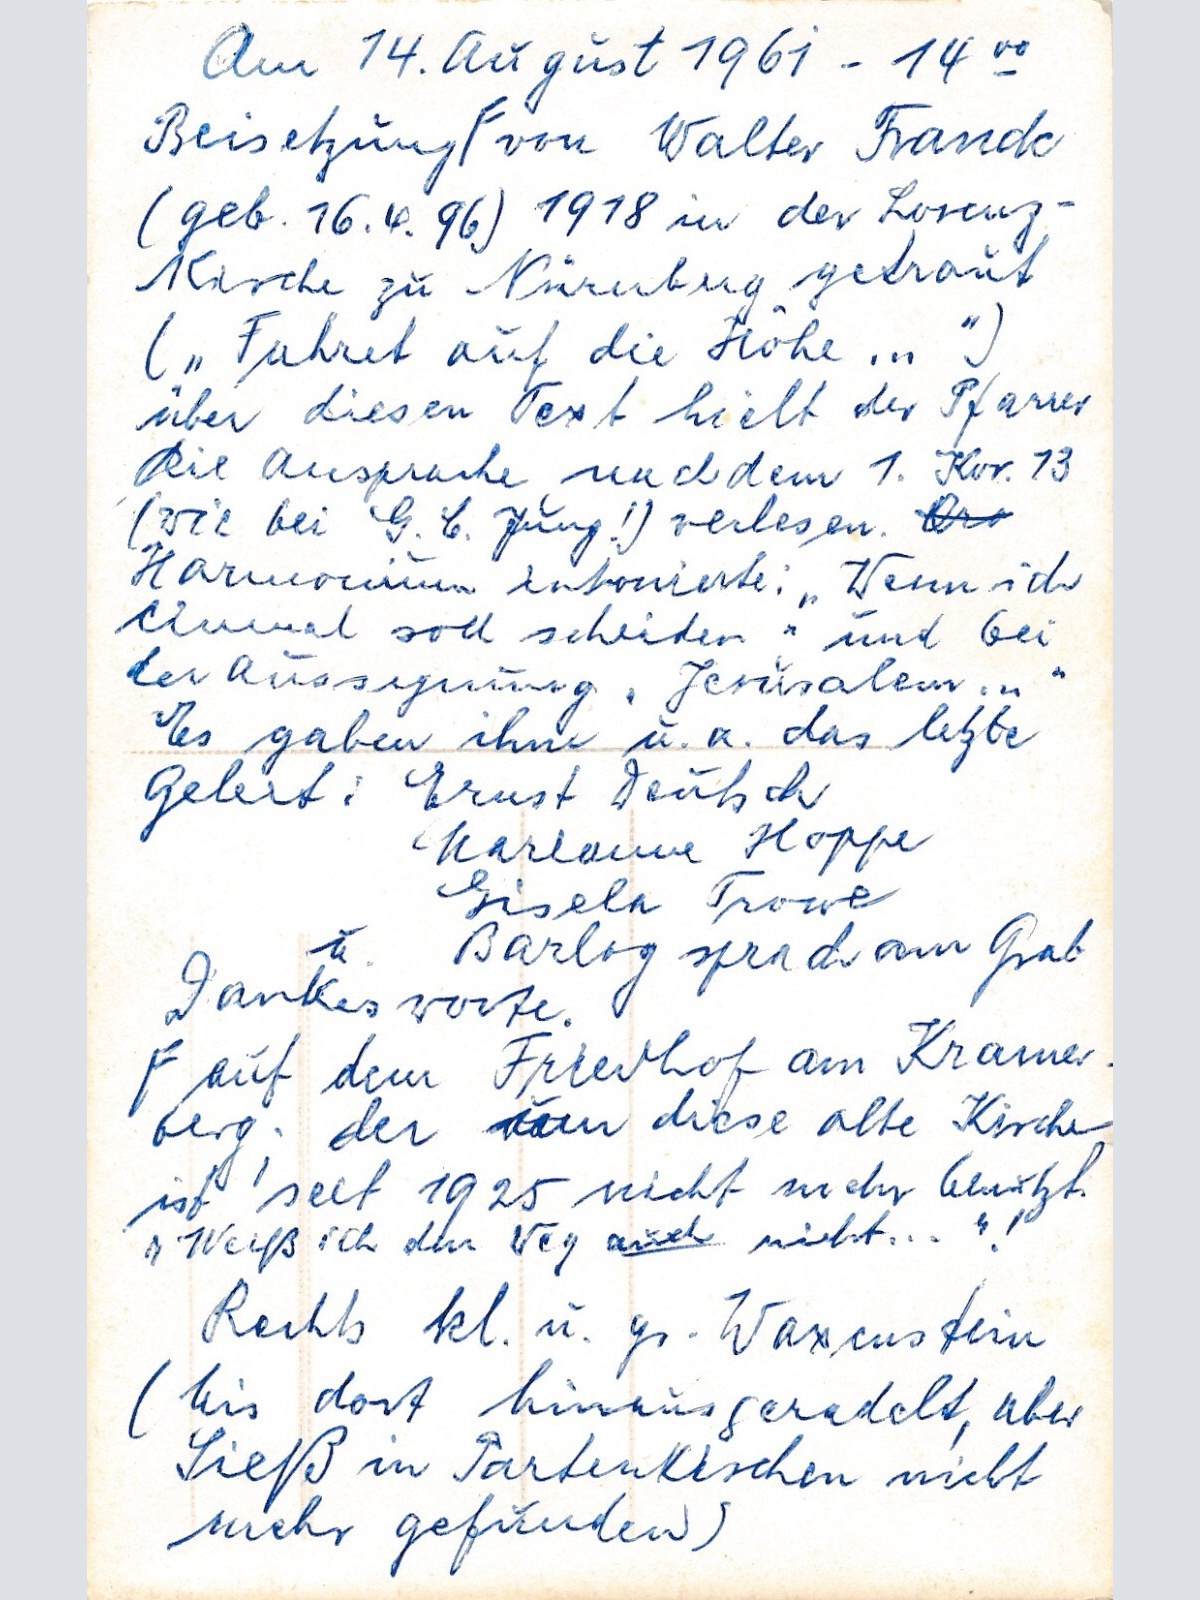 Am 14. August 1961 - 14 00
Beisetzung Γ von Walter Franck
(geb. 16.4.96) 1918 in der Lorenz-
Kirche zu Nürnberg getraut
(„ Fahret auf die Höhe ... ")
über diesen Text hielt der Pfarrer
die Ansprache nachdem 1. Kor. 13
(wie bei G. C. Jung!) verlesen. Or
Harmonium intonierte: „ Wenn ich
einmal soll scheiden " und bei
der Aussegnung „ Jerusalem ... "
Es gaben ihm u. a. das letzte
Geleit: Ernst Deutsch
Marianne Hoppe
Gisela Trowe
u. Barlog sprach am Grab
Dankesworte.
Γ auf dem Friedhof am Kramer-
berg, der um diese alte Kirche
ist, seit 1925 nicht mehr benützt.
„ Weiß ich den Weg auch nicht... "!
Rechts kl. u. gr. Waxenstein
(bis dort hinausgeradelt, aber
Ließ in Partenkirchen nicht
mehr gefunden)